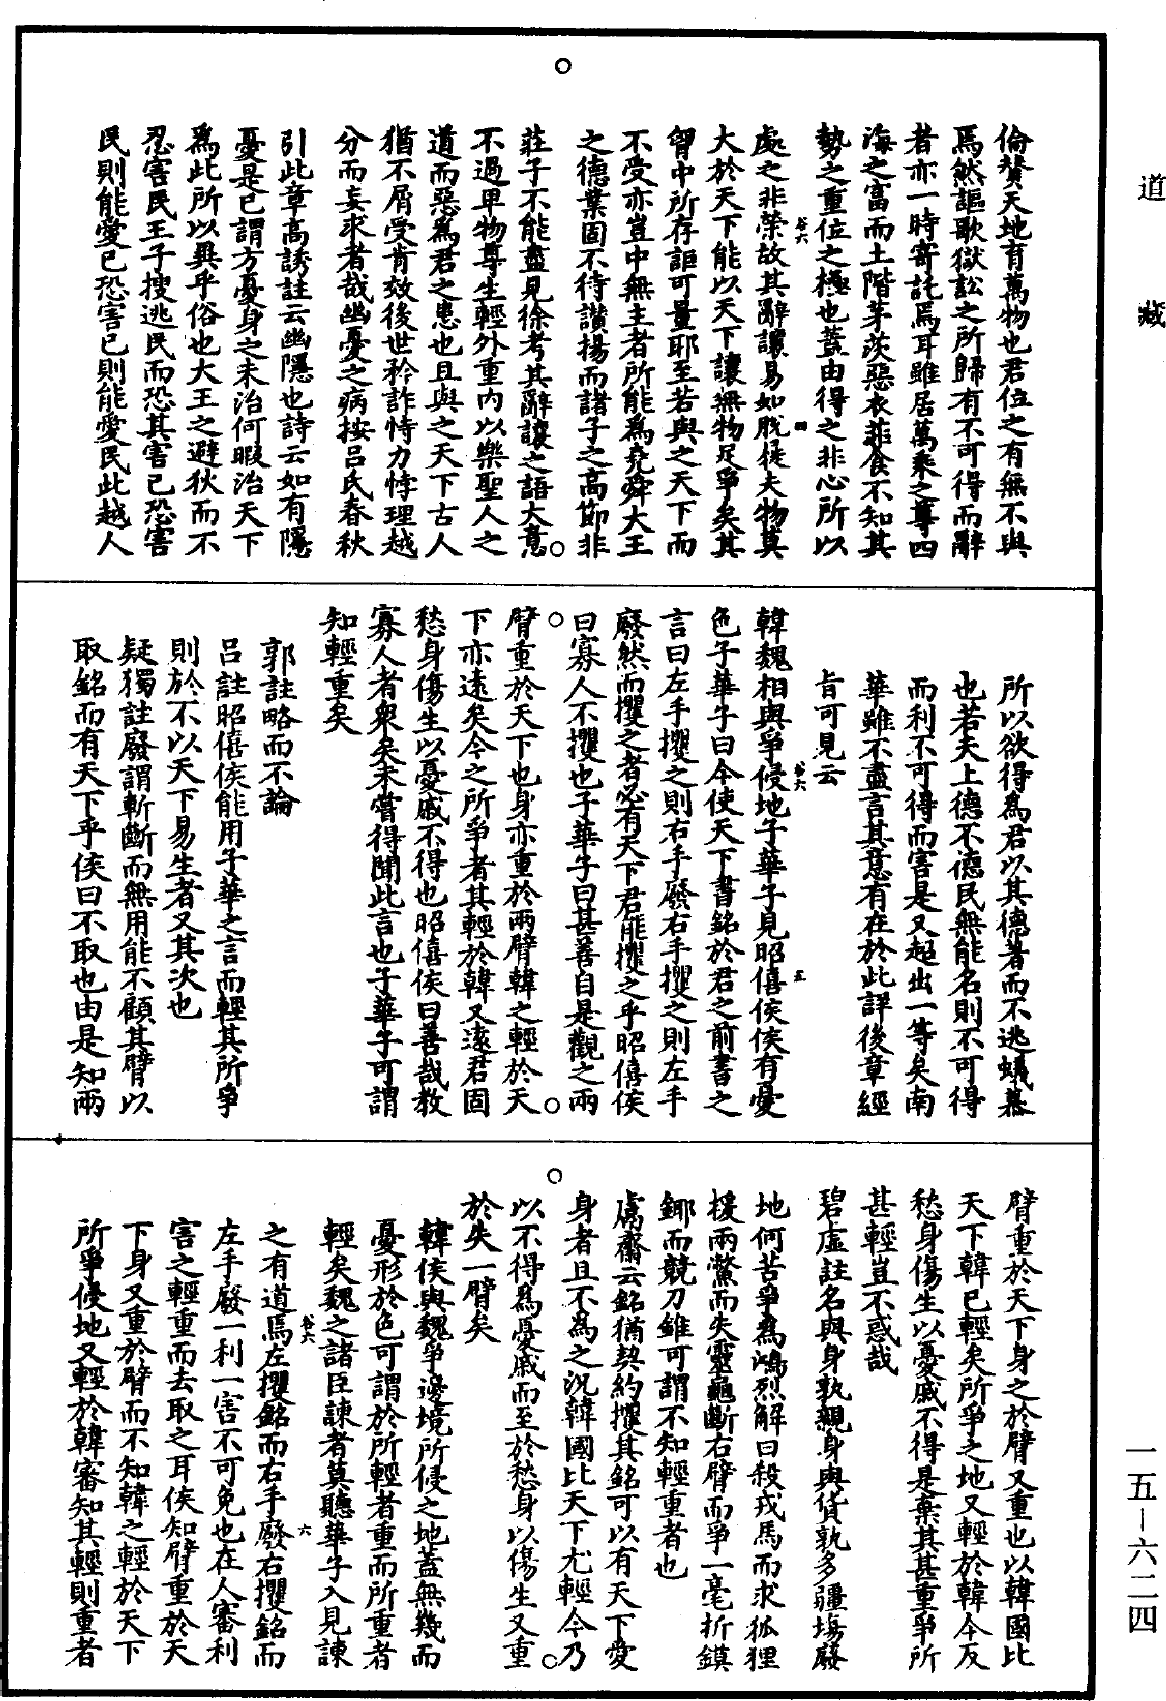 道藏
倫贊天地育萬物也君位之有無不與
焉然謳歌獄訟之所歸有不可得而辭
者亦一時寄託焉耳雖居萬乘之尊四
海之富而土階茅茨惡衣菲食不知其
勢之重位之極也蓋由得之非心所以
處之非榮故其辭讓易如脫屣夫物莫
大於天下能以天下讓無物足爭矣其
胷中所存詎可量耶至若與之天下而
不受亦豈中無主者所能為堯舜大王
之德業固不待讚揚而諸子之高節非
莊子不能盡見徐考其辭讓之語大意
不過卑物尊生輕外重內以樂聖人之
道而惡為君之患也且與之天下古人
猶不屑受肯效後世矜詐恃力悖理越
分而妄求者哉幽憂之病按呂氏春秋
引此章高誘註云幽隱也詩云如有隱
憂是已謂方憂身之未治何暇治天下
為此所以異乎俗也大王之避狄而不
忍害民王子搜逃民而恐其害已恐害
民則能愛已恐害已則能愛民此越人
所以欲得為君以其德著而不逃蟻慕
也若夫上德不德民無能名則不可得
而利不可得而害是又超出一等矣南
華雖不盡言其意有在於此詳後章經
旨可見云
韓魏相與爭侵地子華子見昭僖侯侯有憂
色子華子曰今使天下書銘於君之前書之
言曰左手攫之則右手廢右手攫之則左手
廢然而攫之者必有天下君能攫之乎昭僖侯
曰寡人不攫也子華子曰甚善自是觀之兩
臂重於天下也身亦重於兩臂韓之輕於天
下亦遠矣今之所爭者其輕於韓又遠君固
愁身傷生以憂戚不得也昭僖侯曰善哉教
寡人者衆矣未嘗得聞此言也子華子可謂
知輕重矣
郭註略而不論
呂註昭僖侯能用子華之言而輕其所爭
則於不以天下易生者又其次也
疑獨註廢謂斬斷而無用能不顧其臂以
取銘而有天下乎侯曰不取也由是知兩
臂重於天下身之於臂又重也以韓國比
天下韓已輕矣所爭之地又輕於韓今反
愁身傷生以憂戚不得是棄其甚重爭所
甚輕豈不惑哉
碧虛註名與身孰親身與貨孰多疆場廢
地何苦爭為鴻烈解曰殺戎馬而求狐狸
援兩鱉而失靈龜斷右臂而爭一毫折鏌
鎁而競刀錐可謂不知輕重者也
鬳齋云銘猶契約攫其銘可以有天下愛
身者且不為之況韓國比天下尤輕今乃
以不得為憂戚而至於愁身以傷生又重
於失一臂矣
韓侯與魏爭邊境所侵之地蓋無幾而
憂形於色可謂於所輕者重而所重者
輕矣魏之諸臣諫者莫聽華子入見諫
之有道焉左攫銘而右手廢右攫銘而
左手廢一利一害不可免也在人審利
害之輕重而去取之耳侯知臂重於天
下身又重於臂而不知韓之輕於天下
所爭侵地又輕於韓審知其輕則重者
一五—六二四